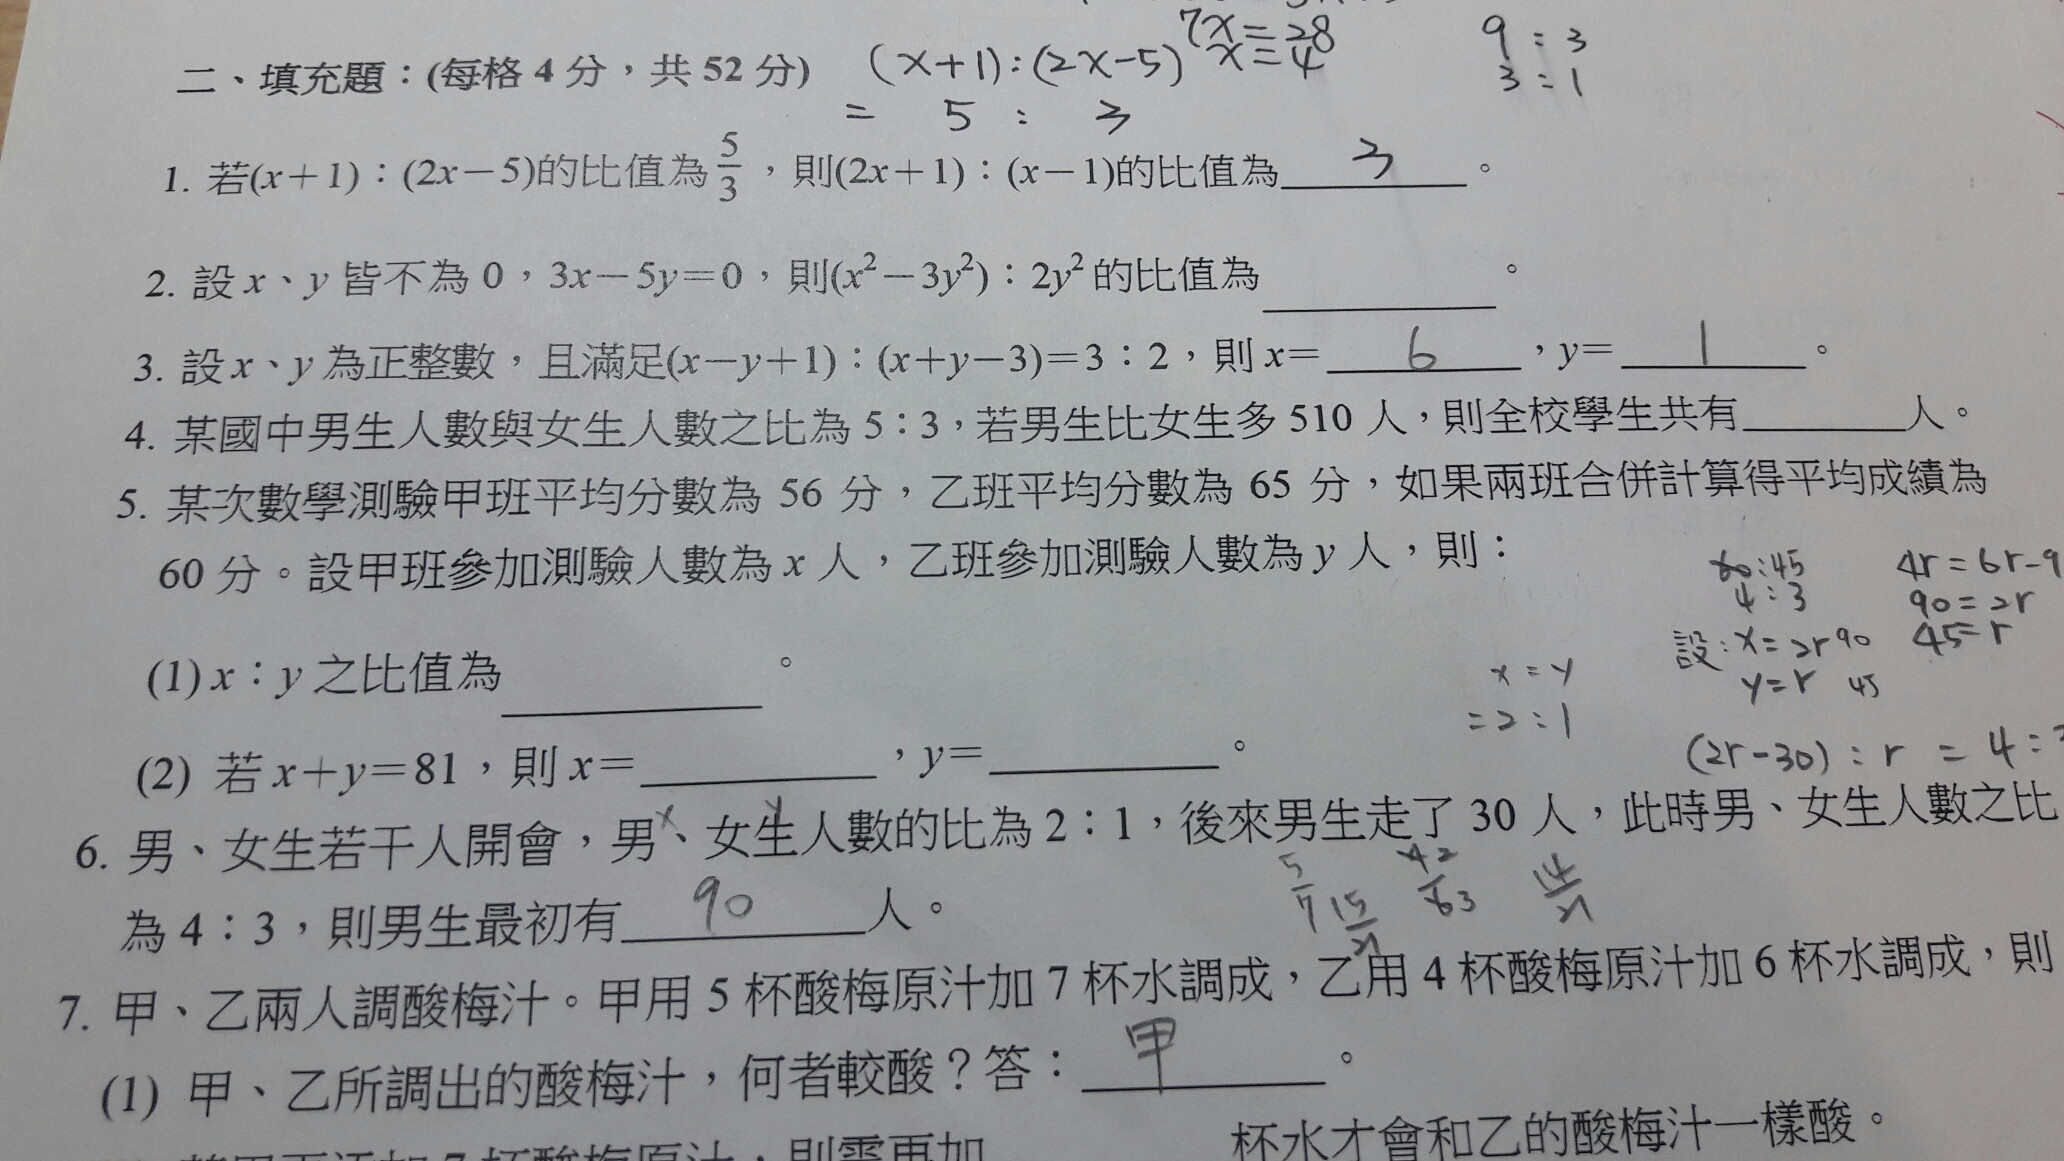 7x=28
二、填充題：(每格 4 分，共 52 分) (x+1):(2x-5) x=4 9:3
= 5 : 3 3:1
1. 若(x+1)：(2x-5)的比值為5/3，則(2x+1)：(x-1)的比值為 3 。
2. 設 x、y 皆不為 0，3x-5y=0，則(x²-3y²)：2y² 的比值為 。
3. 設 x、y 為正整數，且滿足(x-y+1)：(x+y-3)=3：2，則 x= 6 ，y= 1 。
4. 某國中男生人數與女生人數之比為 5：3，若男生比女生多 510 人，則全校學生共有 人。
5. 某次數學測驗甲班平均分數為 56 分，乙班平均分數為 65 分，如果兩班合併計算得平均成績為
60 分。設甲班參加測驗人數為 x 人，乙班參加測驗人數為 y 人，則：
60:45 4r=6r-9
4:3 90=2r
設:x=2r 90 45=r
y=r 45
(1) x：y 之比值為 。
x:y
=2:1
(2r-30):r = 4:
(2) 若 x+y=81，則 x= ，y= 。
x y
6. 男、女生若干人開會，男、女生人數的比為 2：1，後來男生走了 30 人，此時男、女生人數之比
為 4：3，則男生最初有 90 人。
5/7 15/21 42/63 14/21
7. 甲、乙兩人調酸梅汁。甲用 5 杯酸梅原汁加 7 杯水調成，乙用 4 杯酸梅原汁加 6 杯水調成，則
(1) 甲、乙所調出的酸梅汁，何者較酸？答： 甲 。
杯酸梅原汁，則需再加 杯水才會和乙的酸梅汁一樣酸。